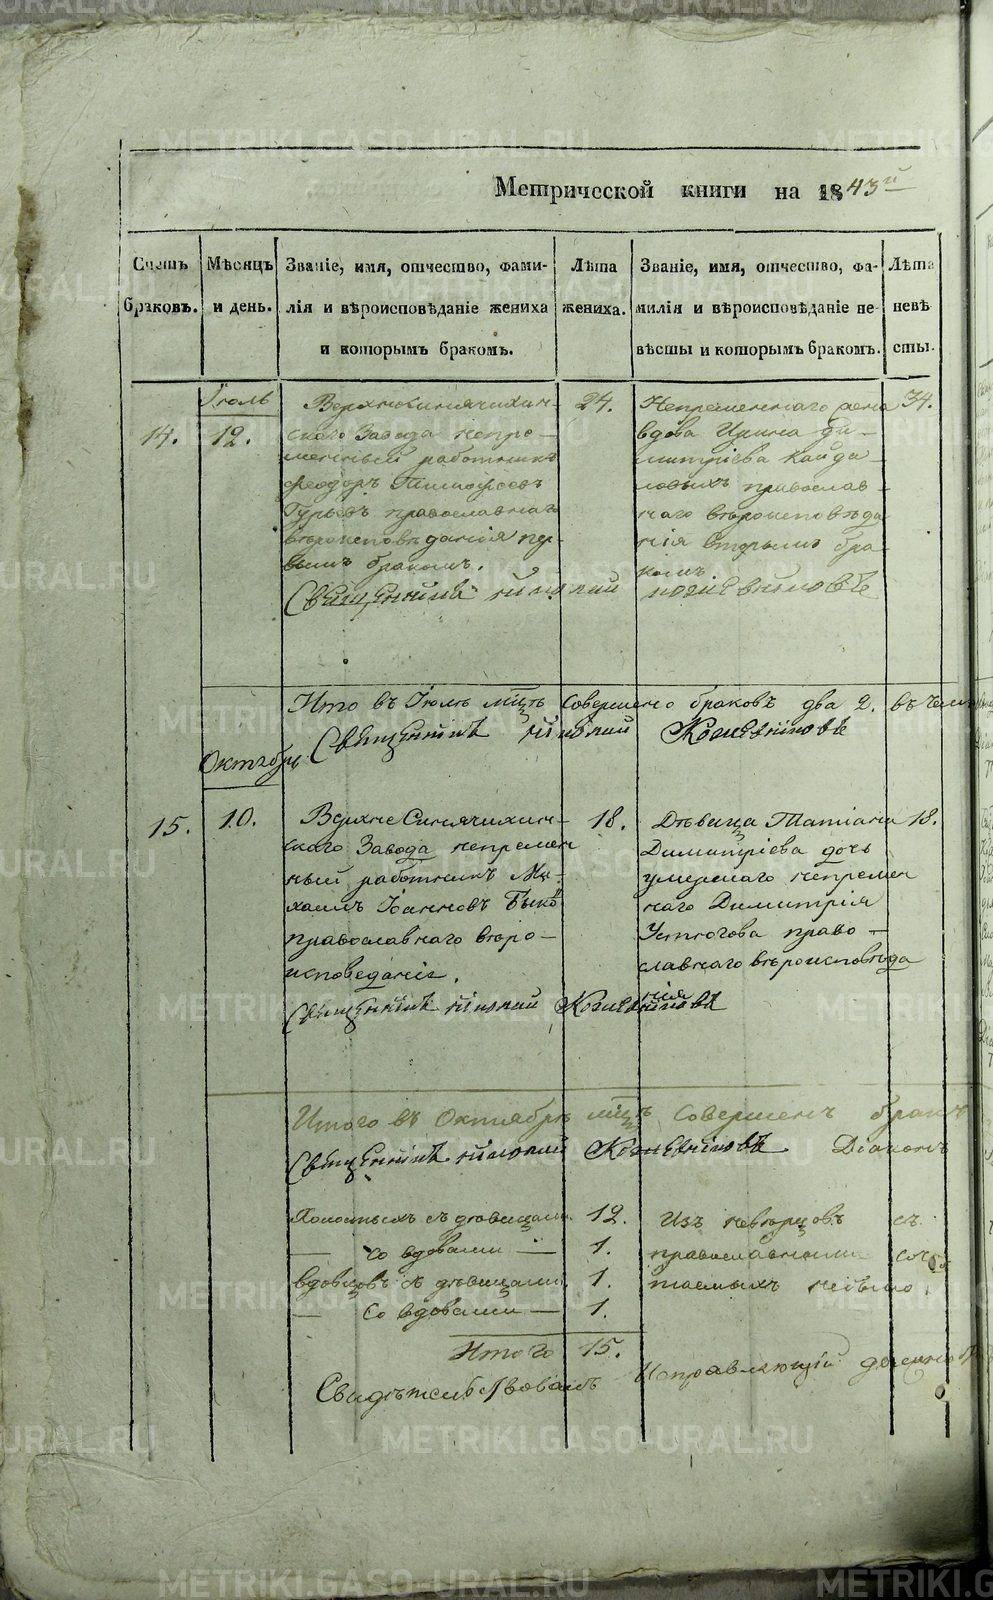 Метрической книги на 1843й
Счетъ браковъ.
Мѣсяцъ и день.
Званіе, имя, отчество, фами-
лія и вѣроисповѣданіе жениха
и которымъ бракомъ.
Лѣта жениха.
Званіе, имя, отчество, фа-
милія и вѣроисповѣданіе не-
вѣсты и которымъ бракомъ.
Лѣта невѣсты.
Іюль
14.
12.
Верхнесинячихин-
скаго Завода непре-
менный работникъ
Феодоръ Тимофеевъ
Гурьевъ православнаго
вѣроисповѣданія пер-
вымъ бракомъ.
24.
Непременнаго жена
вдова Ирина Ди-
митріева Кайда-
ловыхъ православ-
наго вѣроисповѣда
нія вторымъ бра-
комъ
34.
Священникъ
Итого въ Іюлѣ мцѣ совершено браковъ два 2. въ чемъ
Священникъ Кожевниковъ
Октябрь
15.
10.
Верхне Синячихин-
скаго Завода непремен
ный работникъ Ми-
хаилъ Іоанновъ Быко
православнаго вѣро-
исповеданіе.
18.
Дѣвица Татіана
Димитріева дочь
умершаго непремен
наго Димитрія
Устюгова право-
славнаго вѣроисповѣда
нія
18.
Священникъ Кожевниковъ
Итого въ Октябрѣ мцѣ совершенъ бракъ
Священникъ Кожевниковъ Діаконъ
Холостыхъ съ дѣвицами 12.
— со вдовами — 1.
вдовцовъ съ дѣвицами 1.
— со вдовами — 1.
Итого 15.
Изъ съ
православными соче
таемыхъ небыло.
Свидѣтельствовалъ Исправляющій
METRIKI.GASO-URAL.RU